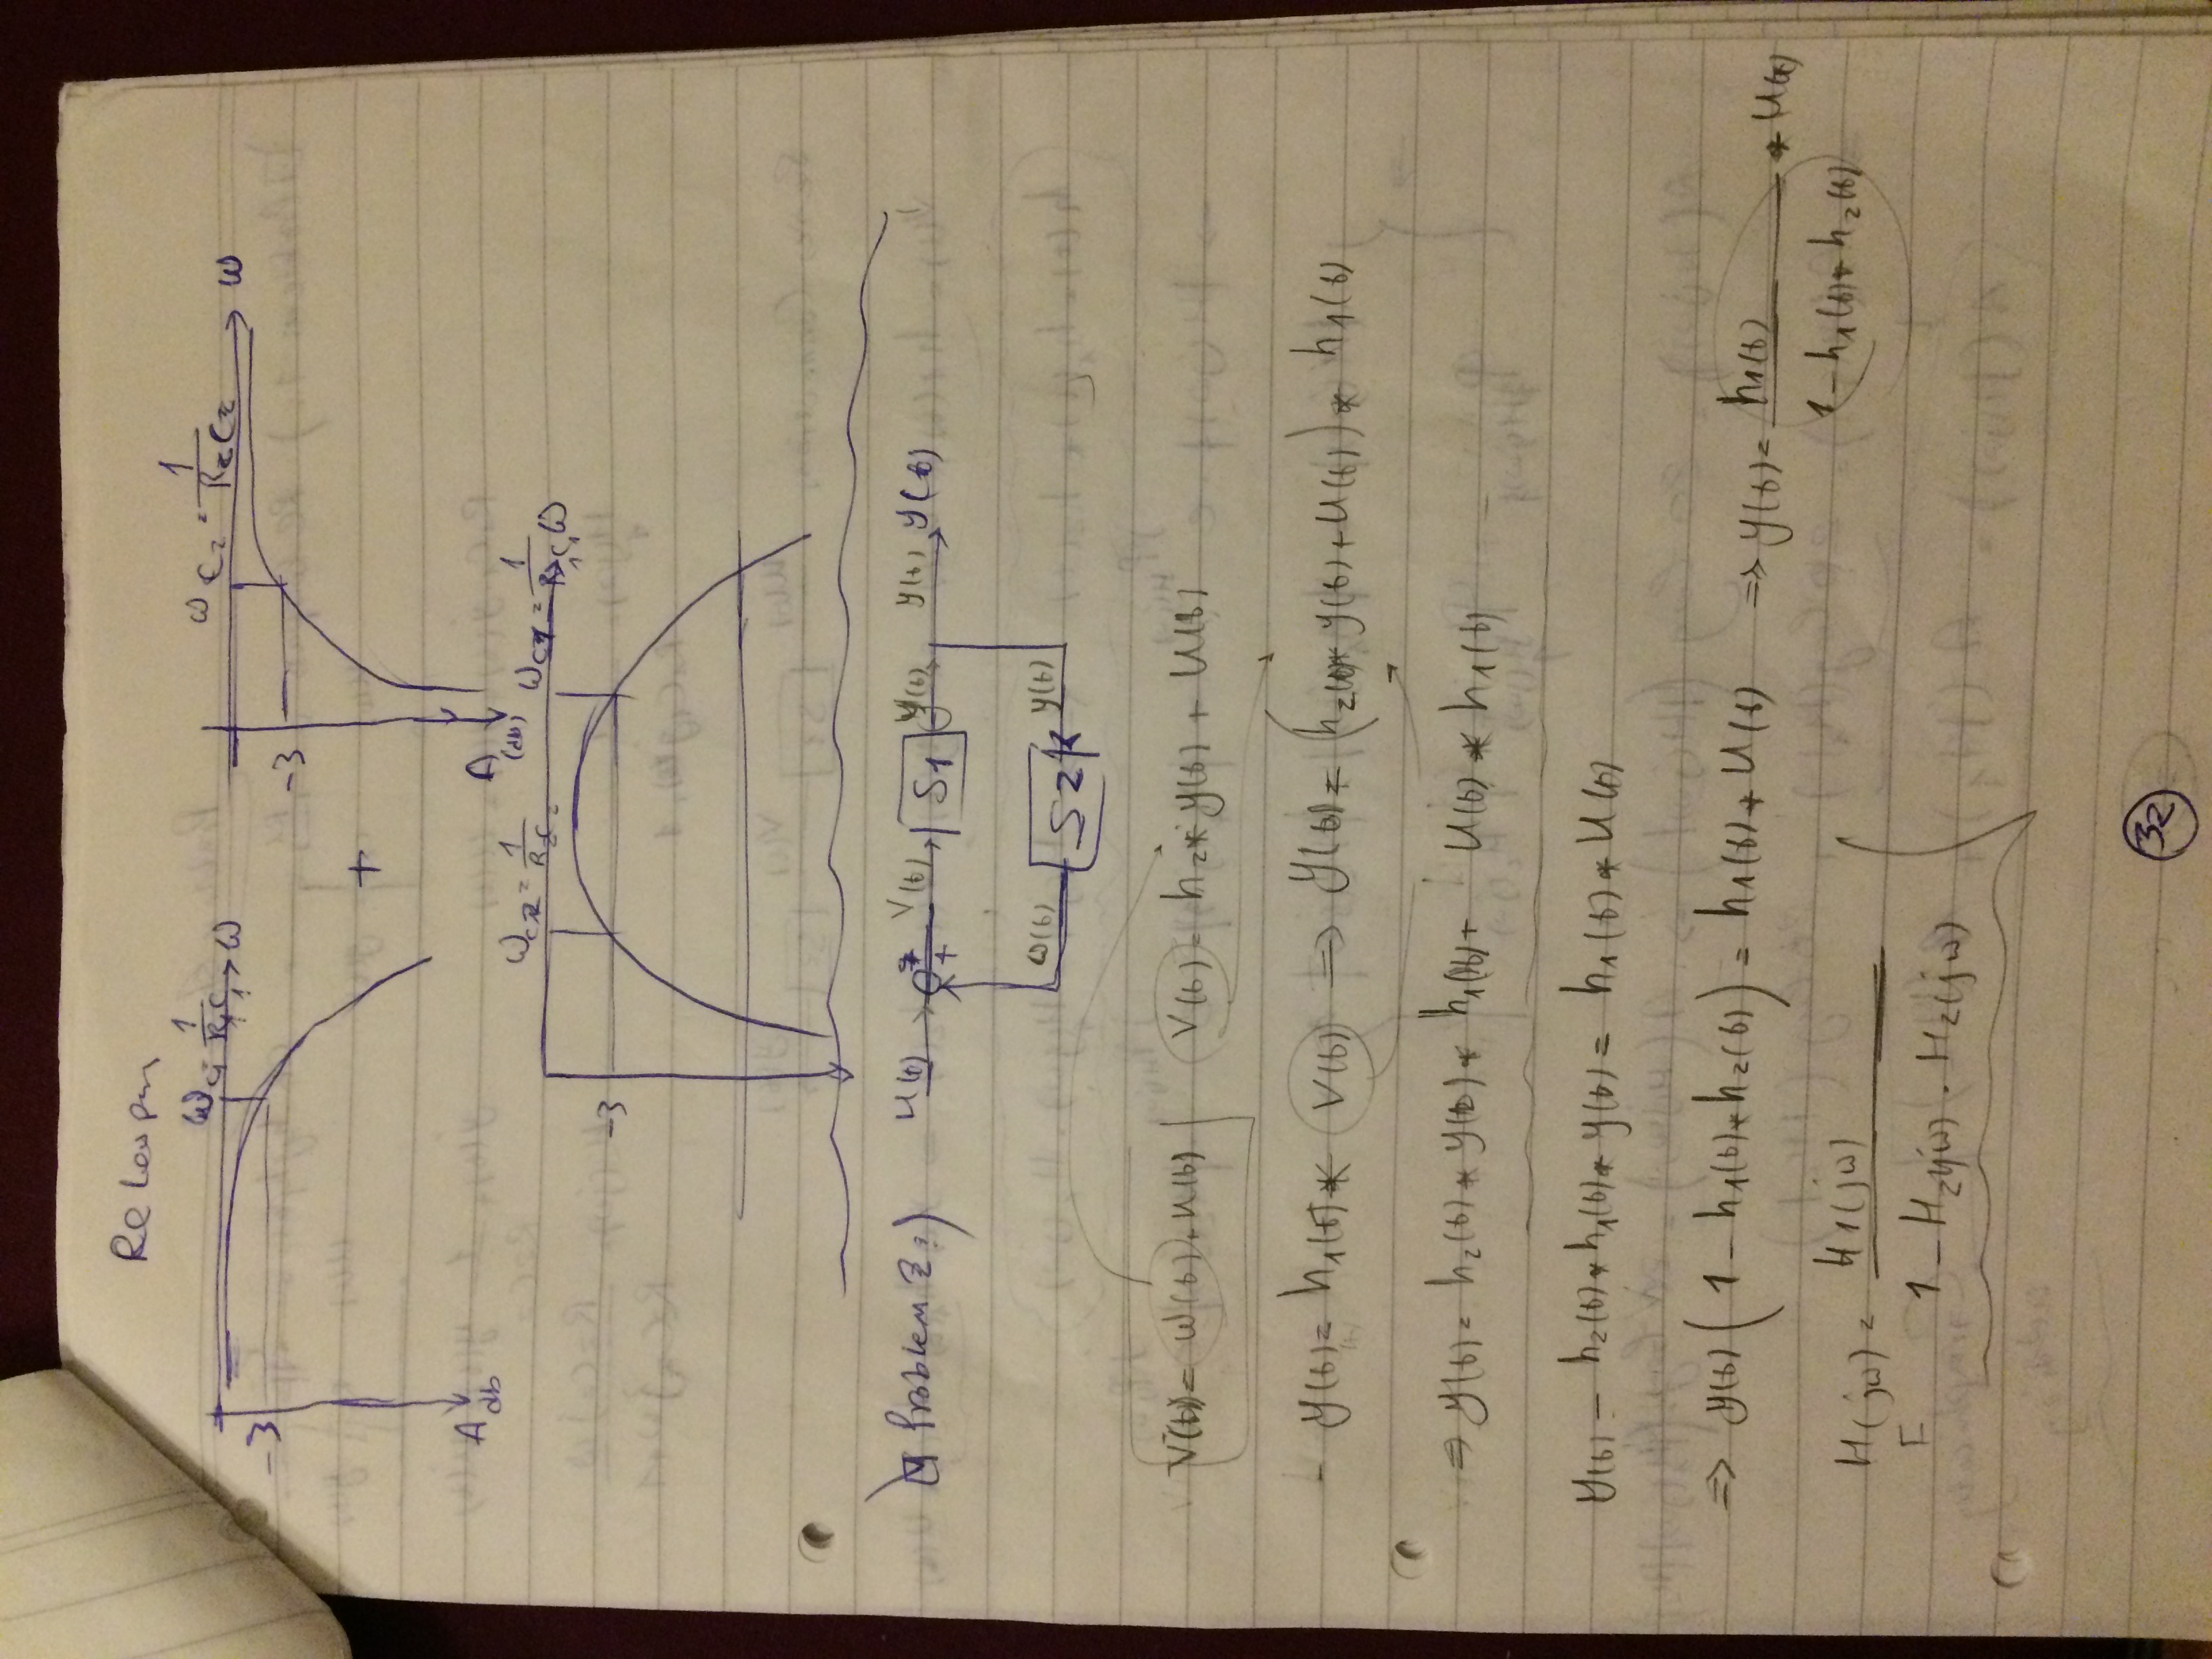 RC Low pass
ωc₁ = 1/R₁C₁ ω
-3
A db
+
ωc₂ = 1/R₂C₂ ω
-3
A (db)
ωc2 = 1/R₂C₂ ωc1 = 1/R₁C₁ ω
-3
Problem 2:) u(t) + + v(t) S1 y(t) y(t) y(t)
ω(t) S2 y(t)
v(t) = ω(t) + u(t) v(t) = h₂ * y(t) + u(t)
- y(t) = h₁(t) * v(t) ⇒ y(t) = (h₂(t) * y(t) + u(t)) * h₁(t)
⇒ y(t) = h₂(t) * y(t) * h₁(t) + u(t) * h₁(t)
y(t) - h₂(t) * h₁(t) * y(t) = h₁(t) * u(t)
⇒ y(t) (1 - h₁(t) * h₂(t)) = h₁(t) * u(t) ⇒ y(t) = h₁(t) / 1 - h₁(t) * h₂(t) * u(t)
H(jω) = H1(jω) / 1 - H₂(jω) . H₂(jω)
F
32